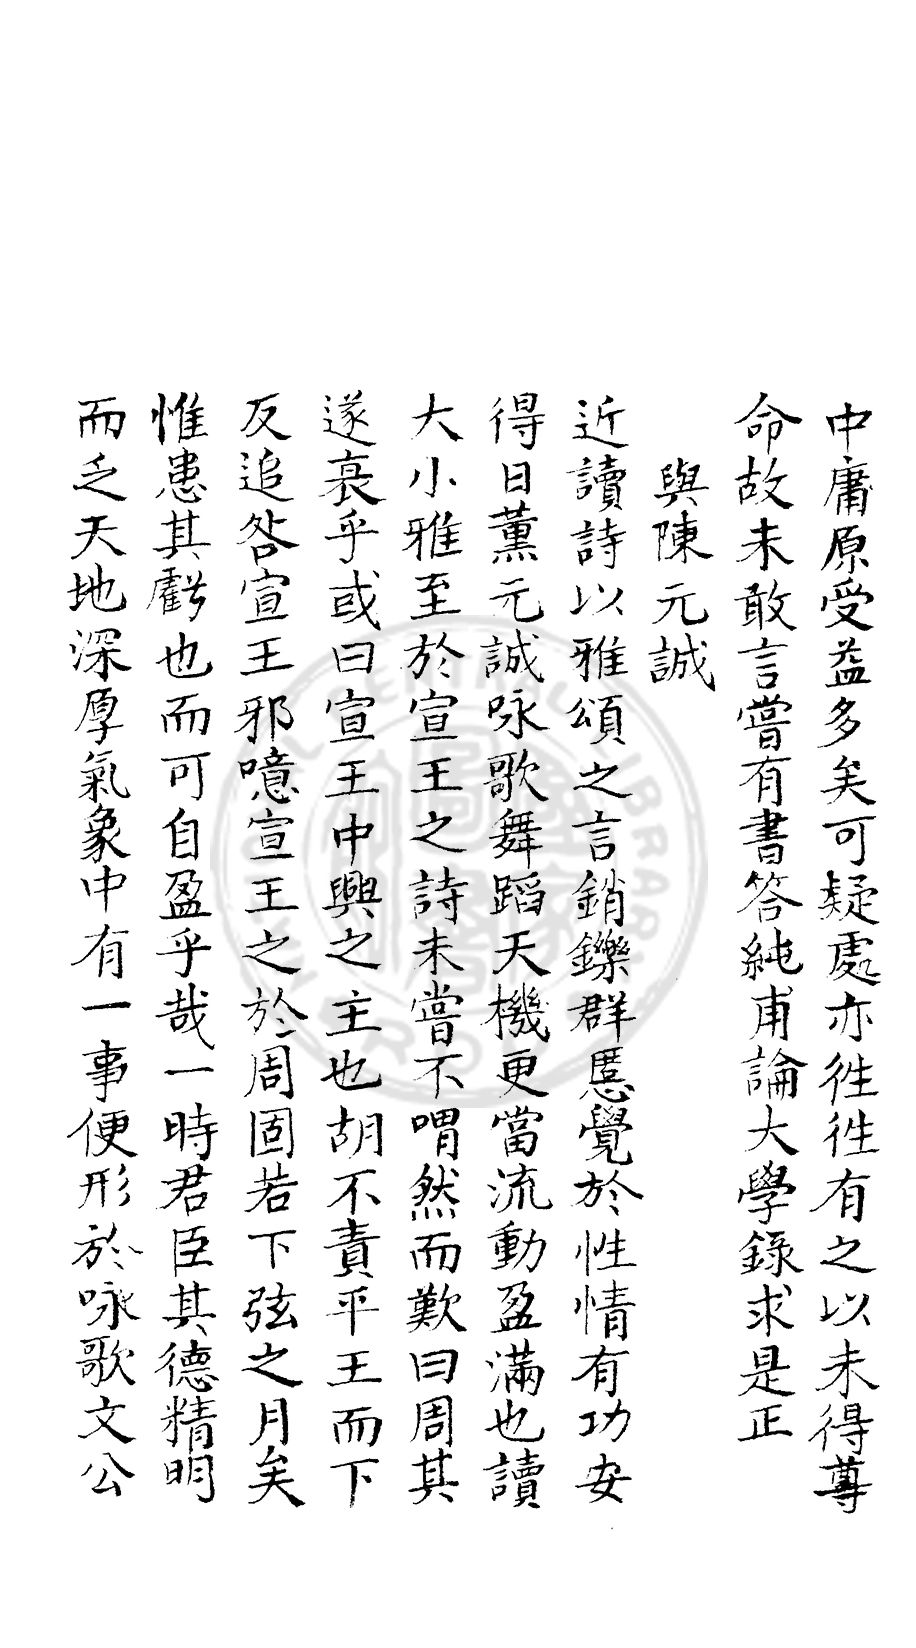 中庸原受益多矣可疑處亦徃徃有之以未得尊
命故未敢言嘗有書答純甫論大學錄求是正
與陳元誠
近讀詩以雅頌之言銷鑠群慝覺於性情有功安
得日薰元誠咏歌舞蹈天機更當流動盈滿也讀
大小雅至於宣王之詩未嘗不喟然而歎曰周其
遂衰乎或曰宣王中興之主也胡不責平王而下
反追咎宣王邪噫宣王之於周固若下弦之月矣
惟患其虧也而可自盈乎哉一時君臣其德精明
而乏天地深厚氣象中有一事便形於咏歌文公